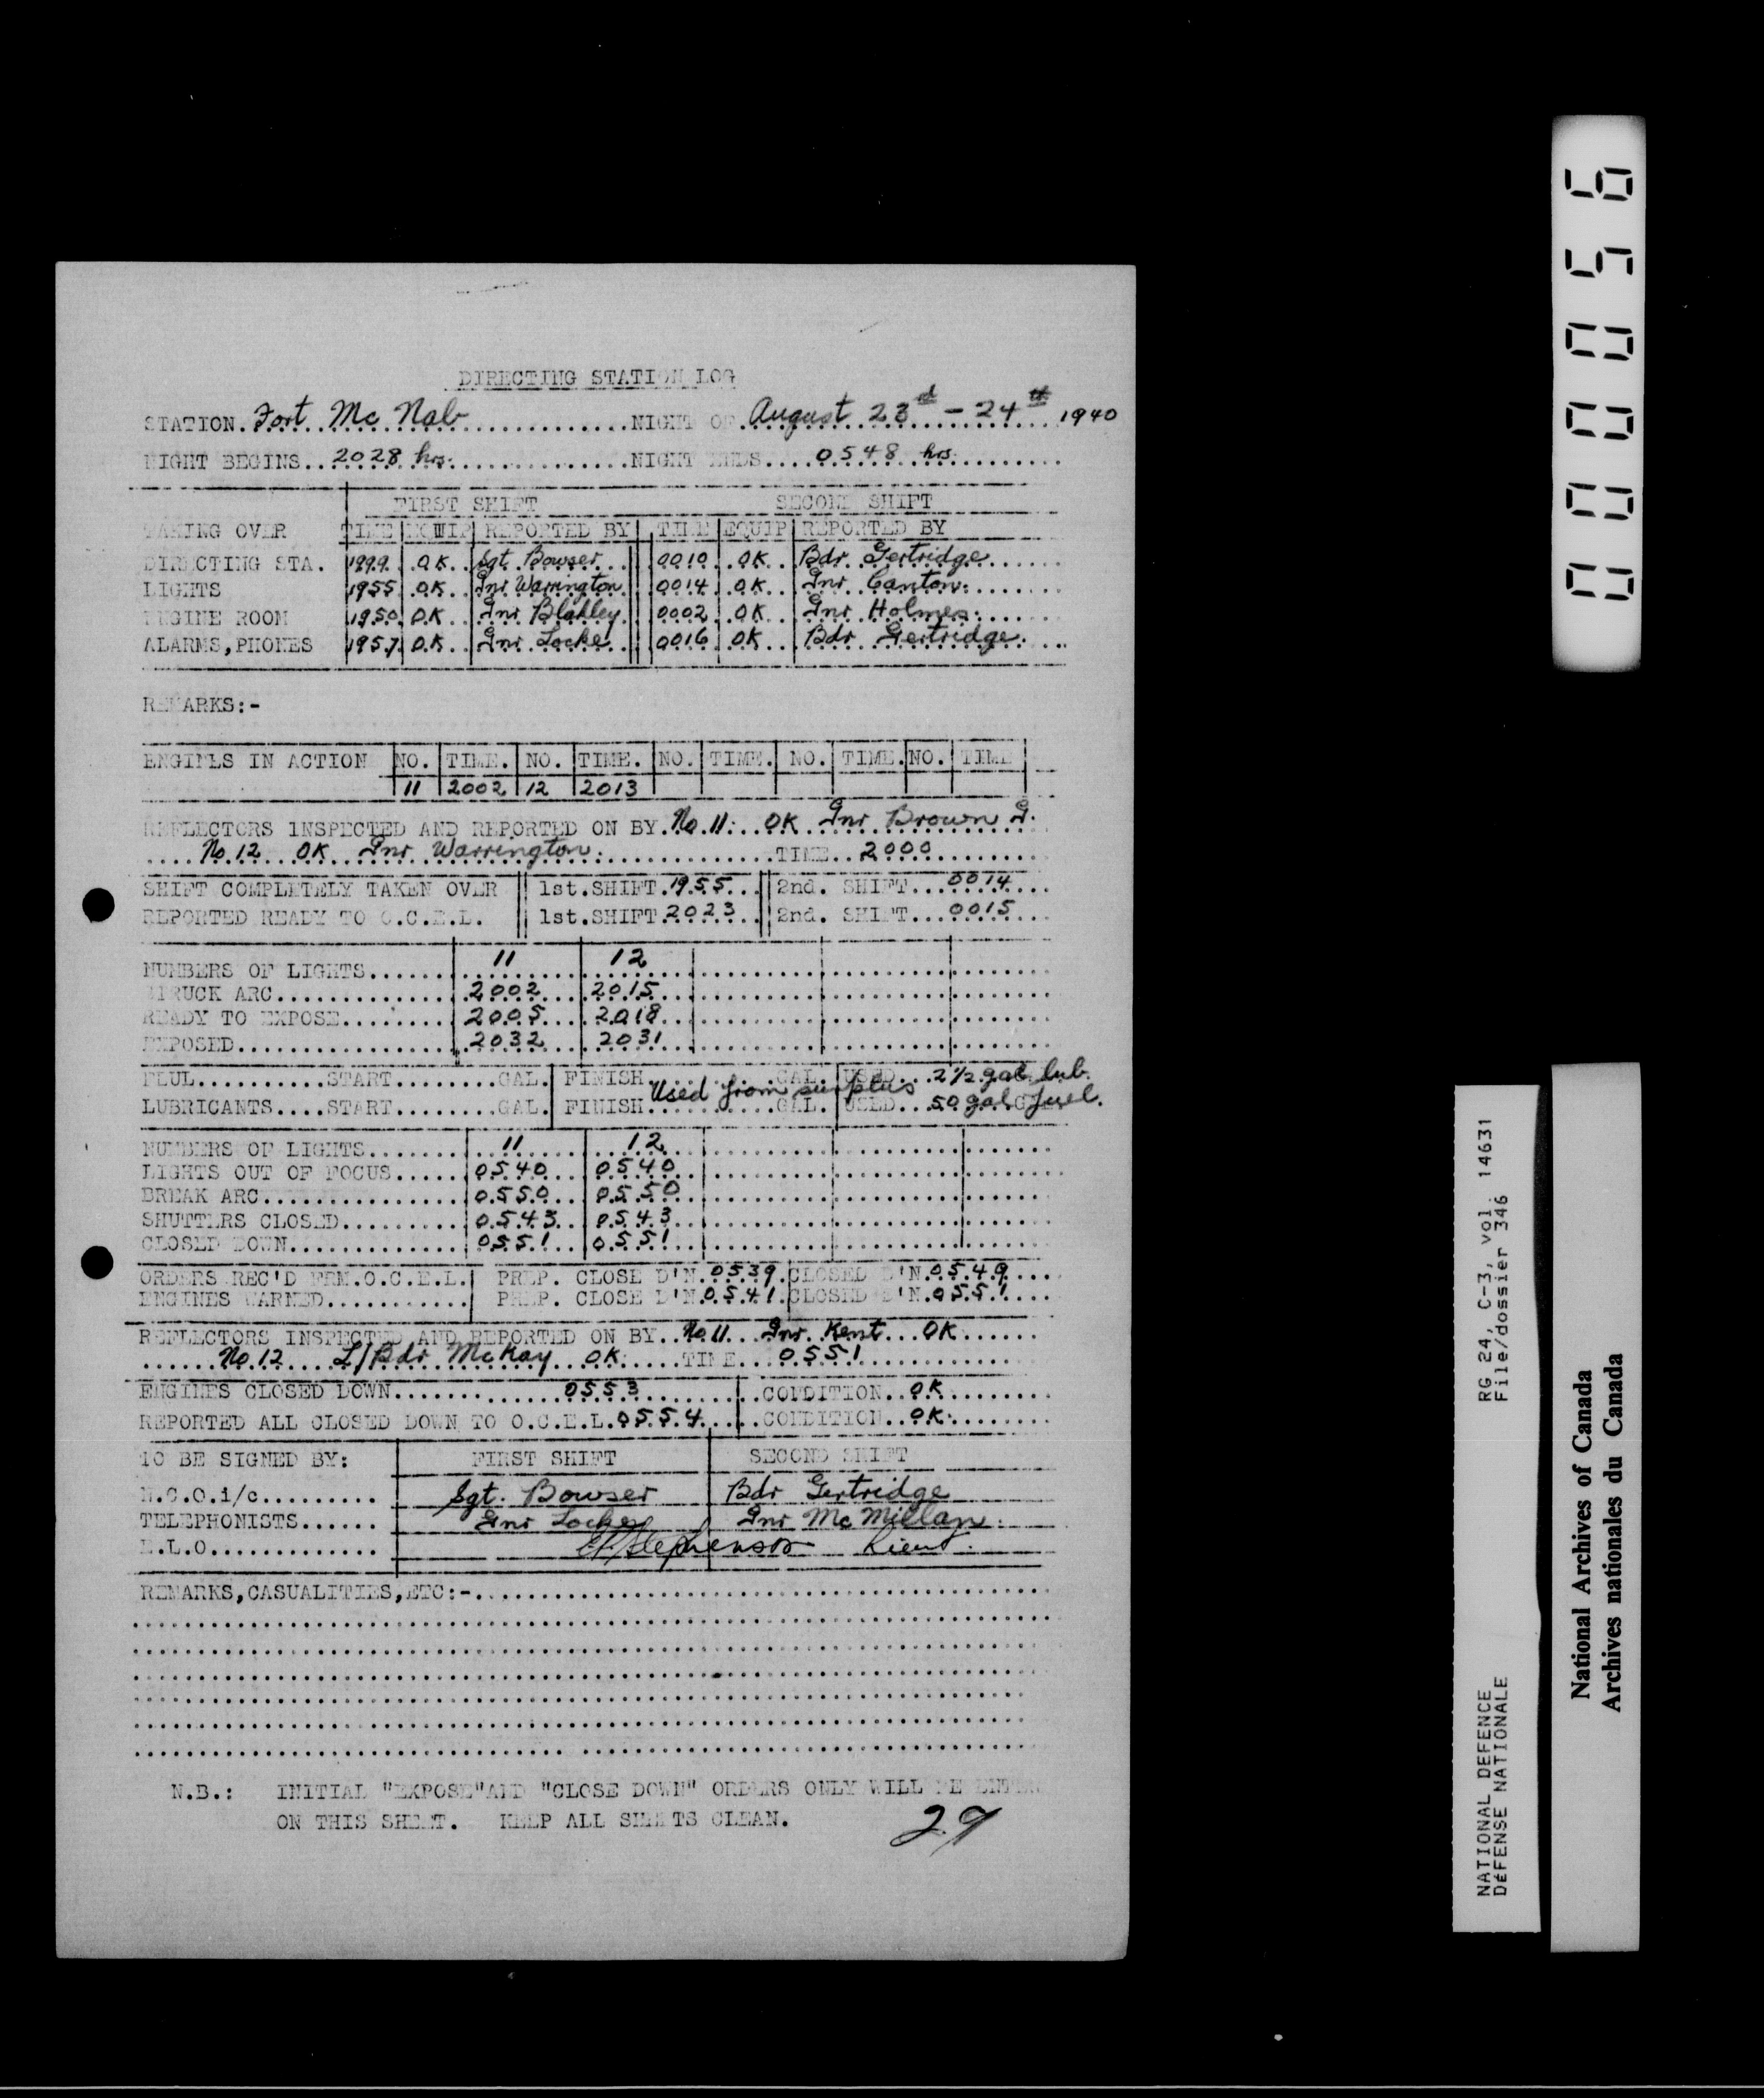 DIRECTING STATION LOG
STATION. Fort Mc Nab NIGHT OF August 23rd - 24th 1940
NIGHT BEGINS.. 2028 hrs. NIGHT ENDS.... 0548 hrs.
FIRST SHIFT SECOND SHIFT
TAKING OVER TIME EQUIP REPORTED BY TIME EQUIP REPORTED BY
DIRECTING STA. 1999 OK Sgt Bowser 0010 OK Bdr Gertridge
LIGHTS 1955 OK Gnr Warrington 0014 OK Gnr Canton.
ENGINE ROOM 1950 OK Gnr Blakley 0002 OK Gnr Holmes.
ALARMS,PHONES 1957 OK Gnr Locke 0016 OK Bdr Gertridge.
REMARKS:-
ENGINES IN ACTION NO. TIME. NO. TIME. NO. TIME. NO. TIME. NO. TIME
11 2002 12 2013
REFLECTORS INSPECTED AND REPORTED ON BY. No. 11. OK Gnr Brown G.
No. 12 OK Gnr Warrington. TIME.. 2000
SHIFT COMPLETELY TAKEN OVER 1st.SHIFT. 1955 2nd. SHIFT... 0014
REPORTED READY TO O.C.E.L. 1st.SHIFT 2023 2nd. SHIFT... 0015
NUMBERS OF LIGHTS....... 11 12
STRUCK ARC.............. 2002 2015
READY TO EXPOSE......... 2005 2018
EXPOSED................. 2032 2031
FUEL..........START........GAL. FINISH..........GAL. USED... 2½ gal. lub.
Used from surplus
LUBRICANTS....START........GAL. FINISH..........GAL. USED... 50 gal. fuel.
NUMBERS OF LIGHTS....... 11 12
LIGHTS OUT OF FOCUS..... 0540 0540
BREAK ARC............... 0550 0550
SHUTTERS CLOSED......... 0543 0543
CLOSED DOWN............. 0551 0551
ORDERS REC'D FRM.O.C.E.L. PREP. CLOSE D'N. 0539. CLOSED D'N. 0549
ENGINES WARNED........... PREP. CLOSE D'N. 0541. CLOSED D'N. 0551
REFLECTORS INSPECTED AND REPORTED ON BY.. No. 11... Gnr. Kent... OK
No. 12 L/Bdr McKay OK. TIME... 0551
ENGINES CLOSED DOWN........ 0553 CONDITION.. OK.
REPORTED ALL CLOSED DOWN TO O.C.E.L. 0554 CONDITION.. OK.
TO BE SIGNED BY: FIRST SHIFT SECOND SHIFT
N.C.O.i/c......... Sgt. Bowser Bdr Gertridge
TELEPHONISTS...... Gnr Locke Gnr Mc Millan.
E.L.O............. Stephenson Lieut.
REMARKS,CASUALITIES,ETC:-
N.B.: INITIAL "EXPOSE"AND "CLOSE DOWN" ORDERS ONLY WILL BE ENTER
ON THIS SHEET. KEEP ALL SHEETS CLEAN.
29
000056
RG 24, C-3, vol. 14631
File/dossier 346
NATIONAL DEFENCE
DÉFENSE NATIONALE
National Archives of Canada
Archives nationales du Canada